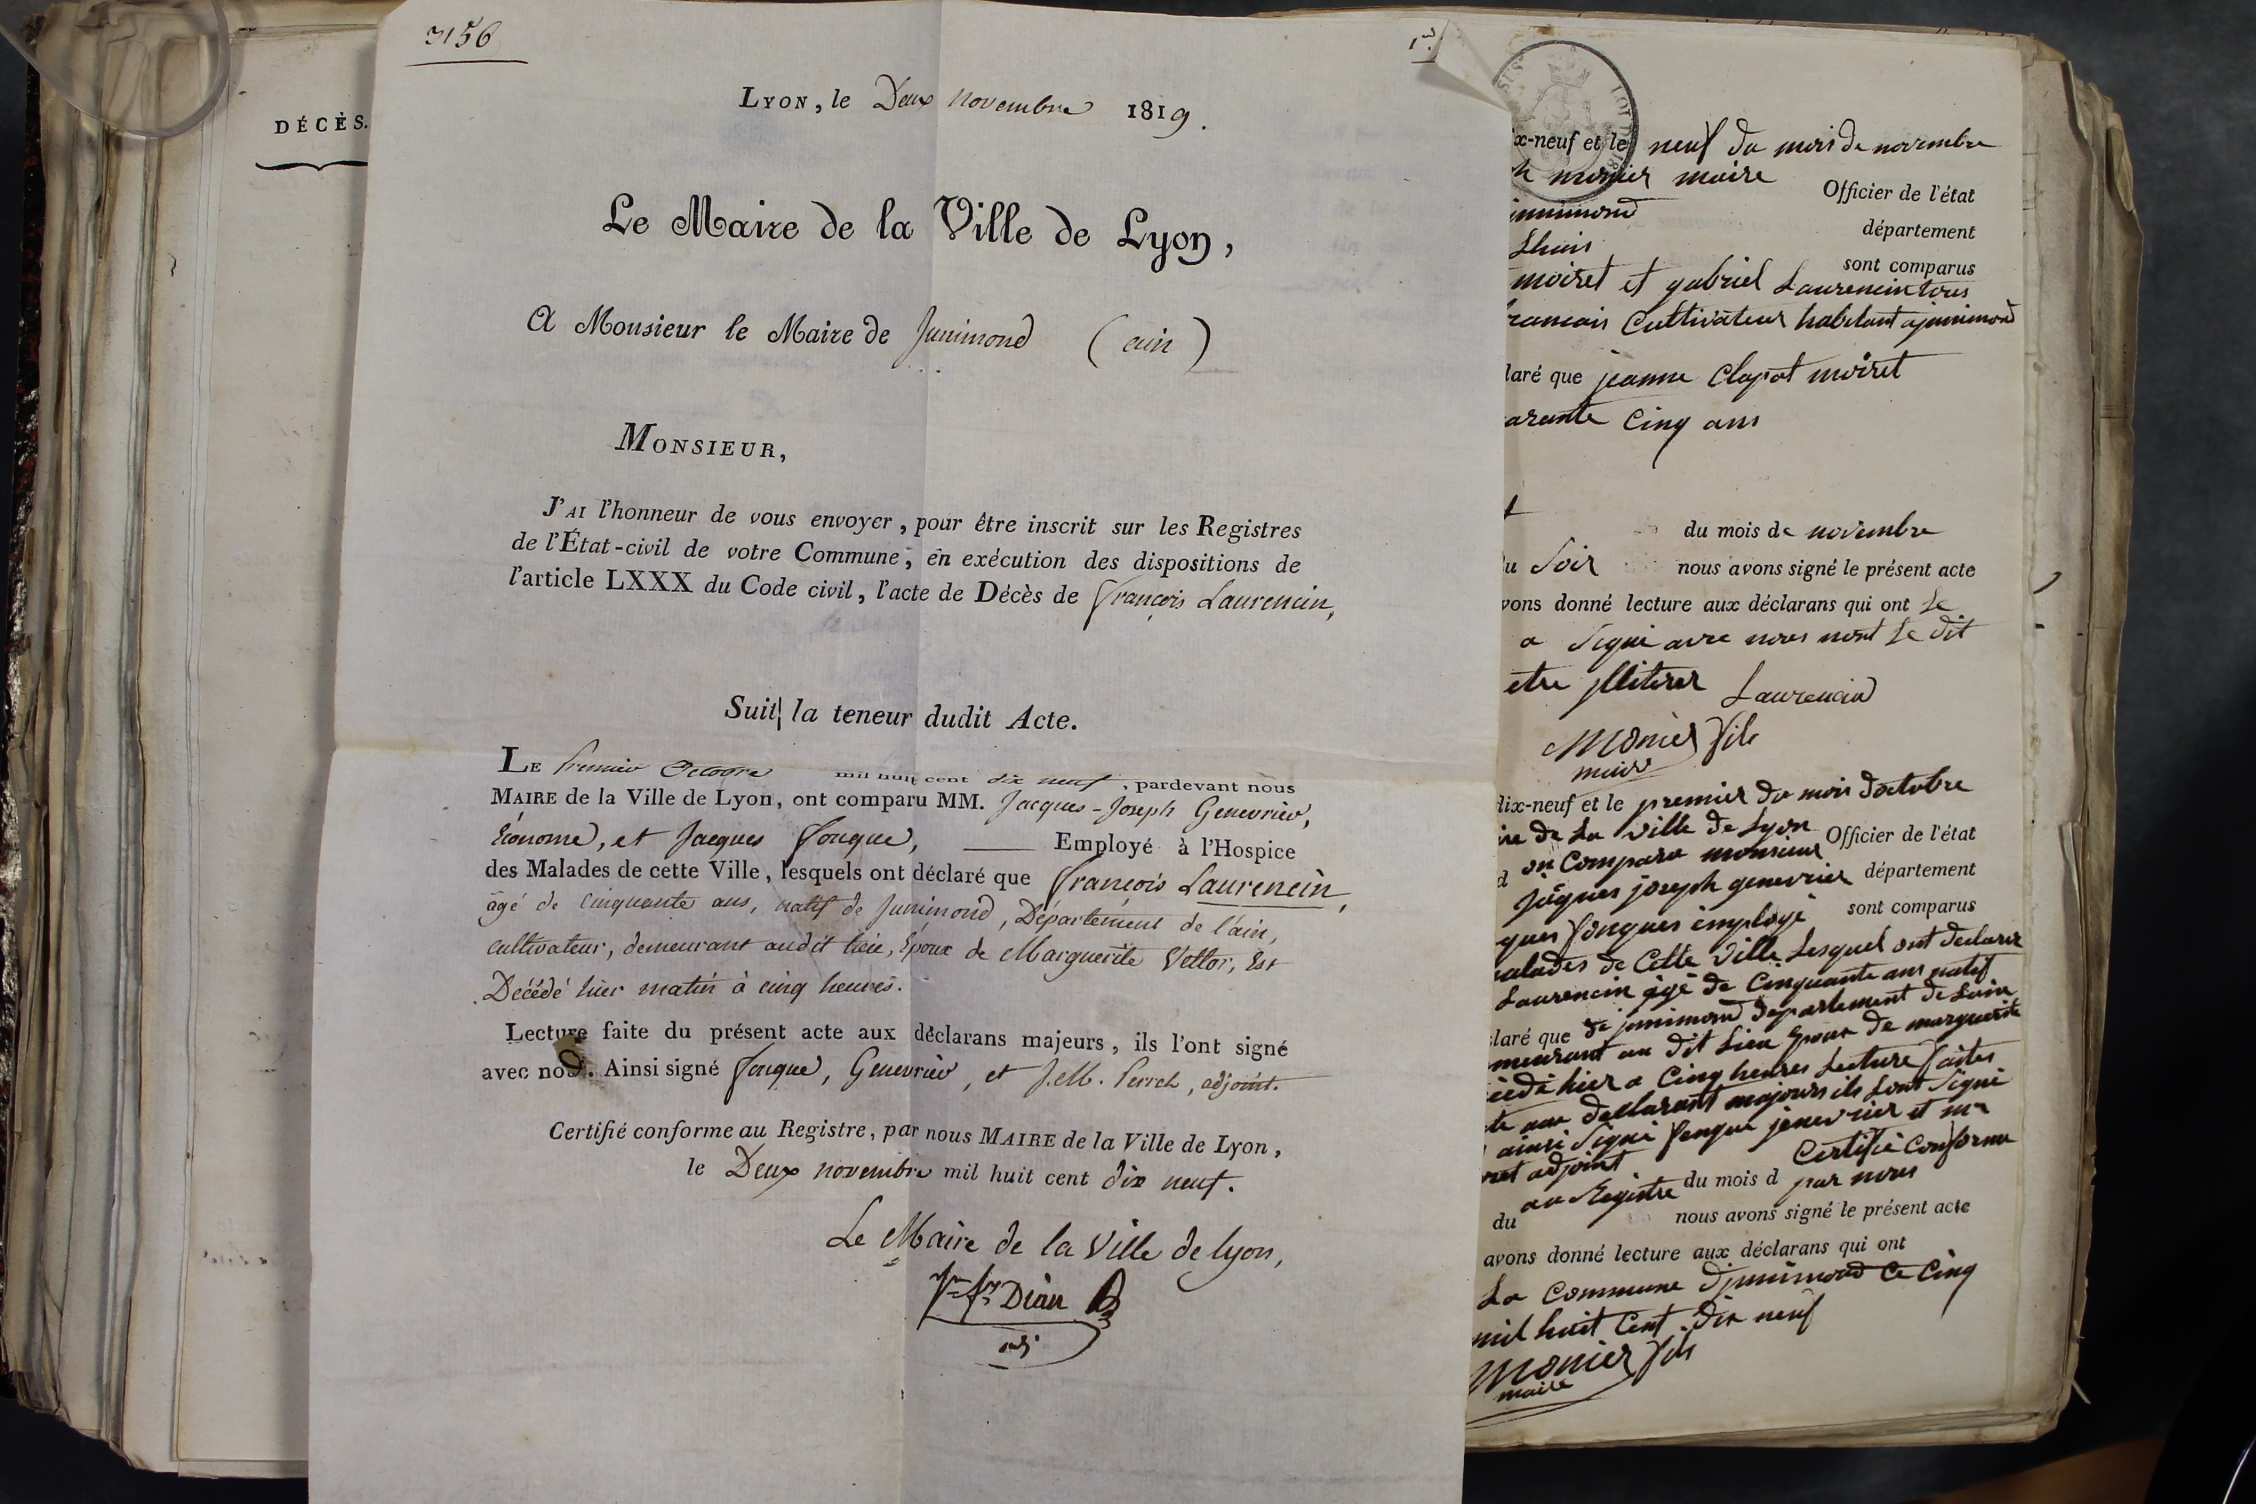 3156
DÉCÈS.
LYON, le Deux novembre 1819.
Le Maire de la Ville de Lyon,
A Monsieur le Maire de Junimond (ain)
MONSIEUR,
J'AI l'honneur de vous envoyer, pour être inscrit sur les Registres
de l'État-civil de votre Commune, en exécution des dispositions de
l'article LXXX du Code civil, l'acte de Décès de François Laurencin,
Suit la teneur dudit Acte.
LE Premier Octobre mil huit cent dix neuf, pardevant nous
MAIRE de la Ville de Lyon, ont comparu MM. Jacques-Joseph Genevrier,
Économe, et Jacques Fouque, Employé à l'Hospice
des Malades de cette Ville, lesquels ont déclaré que François Laurencin,
âgé de cinquante ans, natif de Junimond, Département de l'ain,
cultivateur, demeurant audit lieu, Époux de Marguerite Vettor, Est
Décédé hier matin à cinq heures.
Lecture faite du présent acte aux déclarans majeurs, ils l'ont signé
avec nous. Ainsi signé Fouque, Genevrier, et J.M. Perret, adjoint.
Certifié conforme au Registre, par nous MAIRE de la Ville de Lyon,
le Deux novembre mil huit cent dix neuf.
Le Maire de la Ville de Lyon,
Dian
adj
x-neuf et le neuf du mois de novembre
monier maire Officier de l'état
jnnimond département
Lhuis sont comparus
moiret et gabriel Laurencin tous
francais Cultivateur habitant a jnnimond
laré que jeanne Clapot moiret
arante Cinq ans
du mois de novembre
u Soir nous avons signé le présent acte
vons donné lecture aux déclarans qui ont Le
a Signé avec nous nont Le dit
etre jlliterer Laurencin
Monier fils
maire
dix-neuf et le premier du mois doctobre
ire de La ville de Lyon Officier de l'état
on Comparu monsieur
jaques joseph genevrier département
ques fonques employé sont comparus
malades de Cette Ville Lesquel ont declarer
Laurencin agé de Cinquante ans natif
claré que de jnnimond departement de Lain
meurant au dit Lieu Epoux de marguerite
cedé hier a Cinq heures Lecture faites
te aux declarant majours ils Lont Signé
ainsi Signé fonque jenevrier et m
ret adjoint Certifié Conforme
au Registre du mois d par nous
du nous avons signé le présent acte
avons donné lecture aux déclarans qui ont
La Commune djnnimond Ce Cinq
mil huit Cent dix neuf
Monier fils
maire